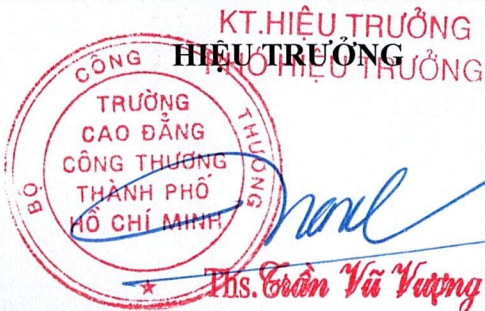 KT.HIỆU TRƯỞNG
HIỆU TRƯỞNG
PHÓ HIỆU TRƯỞNG
BỘ CÔNG THƯƠNG
TRƯỜNG
CAO ĐẲNG
CÔNG THƯƠNG
THÀNH PHỐ
HỒ CHÍ MINH
Ths.Trần Vũ Vượng